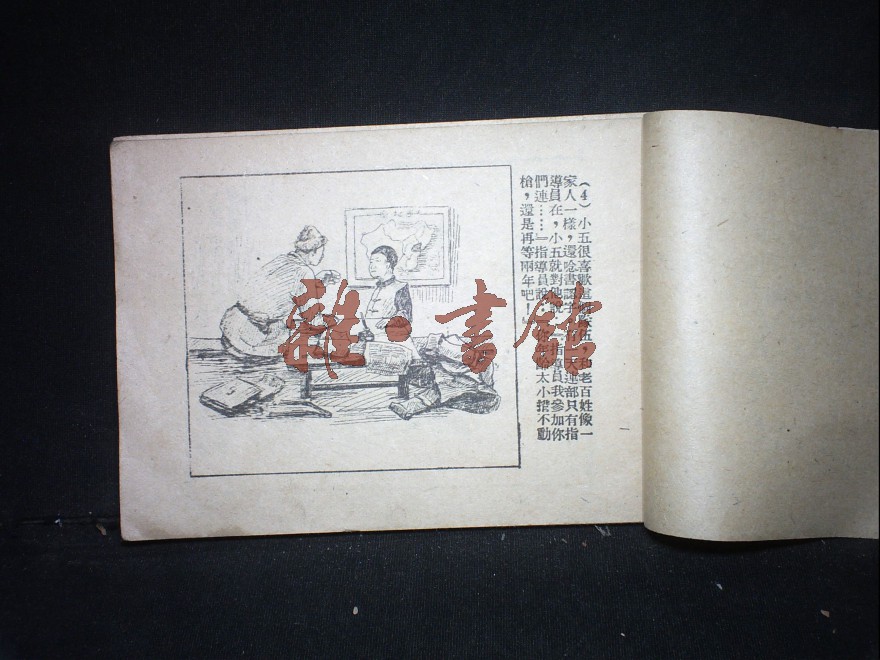 （4）小五很喜歡這 和老百姓像一
家人一樣，還唸書 天連部只有指
導員在，小五就對他 指導員我參加你
們連……』指導員說 太小揹不動
槍，還是再等兩年吧！
雜·書館